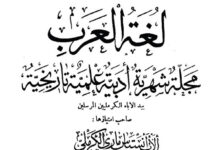 لغة العرب
مجلة شهرية أدبية علمية تاريخية
بيد الآباء الكرمليين المرسلين
صاحب امتيازها:
الأب أنستاس ماري الكرملي